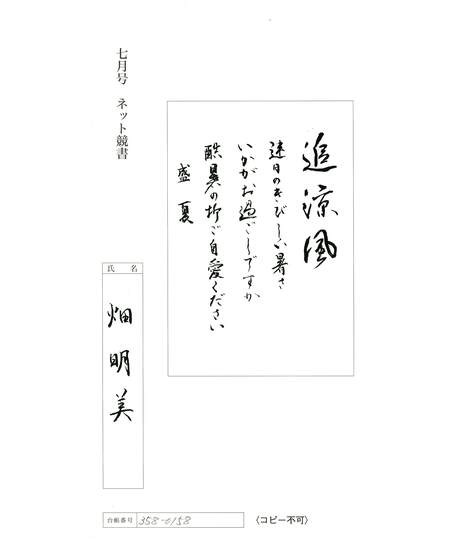 追涼風
連日のきびしい暑さ
いかがお過ごしですか
酷暑の折ご自愛ください
盛夏
七月号 ネット競書
氏名
畑明美
台帳番号 358-0158
〈コピー不可〉